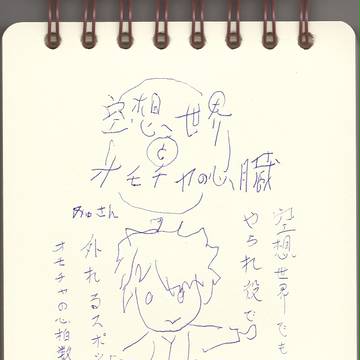 空想、世界
と
オモチャの心臓
あゅさん
空想世界でも
やられ役で
外れるスポッ
オモチャの心拍数